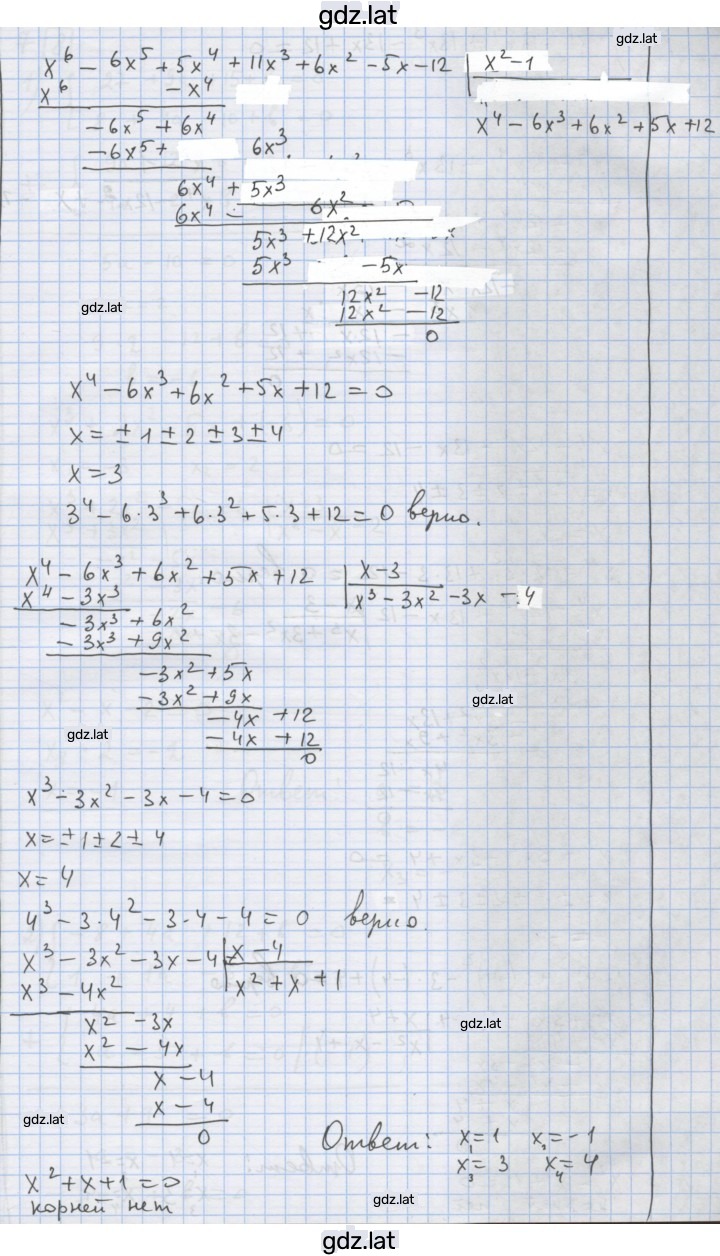 gdz.lat
x⁶ - 6x⁵ + 5x⁴ + 11x³ + 6x² - 5x - 12 | x² - 1
x⁶ - x⁴
x⁴ - 6x³ + 6x² + 5x + 12
-6x⁵ + 6x⁴
-6x⁵ + 6x³
6x⁴ + 5x³
6x⁴ - 6x²
5x³ + 12x²
5x³ - 5x
12x² - 12
12x² - 12
0
gdz.lat
x⁴ - 6x³ + 6x² + 5x + 12 = 0
x = ± 1 ± 2 ± 3 ± 4
x = 3
3⁴ - 6·3³ + 6·3² + 5·3 + 12 = 0 верно.
x⁴ - 6x³ + 6x² + 5x + 12 | x - 3
x⁴ - 3x³ | x³ - 3x² - 3x - 4
-3x³ + 6x²
-3x³ + 9x²
-3x² + 5x
-3x² + 9x
gdz.lat
-4x + 12
-4x + 12
gdz.lat
0
x³ - 3x² - 3x - 4 = 0
x = ± 1 ± 2 ± 4
x = 4
4³ - 3·4² - 3·4 - 4 = 0 верно.
x³ - 3x² - 3x - 4 | x - 4
x³ - 4x² | x² + x + 1
x² - 3x
x² - 4x
gdz.lat
x - 4
x - 4
gdz.lat
0
Ответ: x₁ = 1 x₂ = -1
x₃ = 3 x₄ = 4
x² + x + 1 = 0
корней нет
gdz.lat
gdz.lat